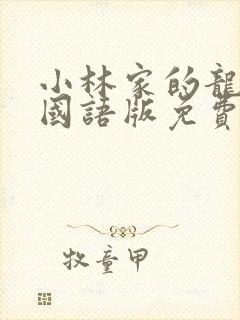 小林家的龍
國語版免費
牧童甲